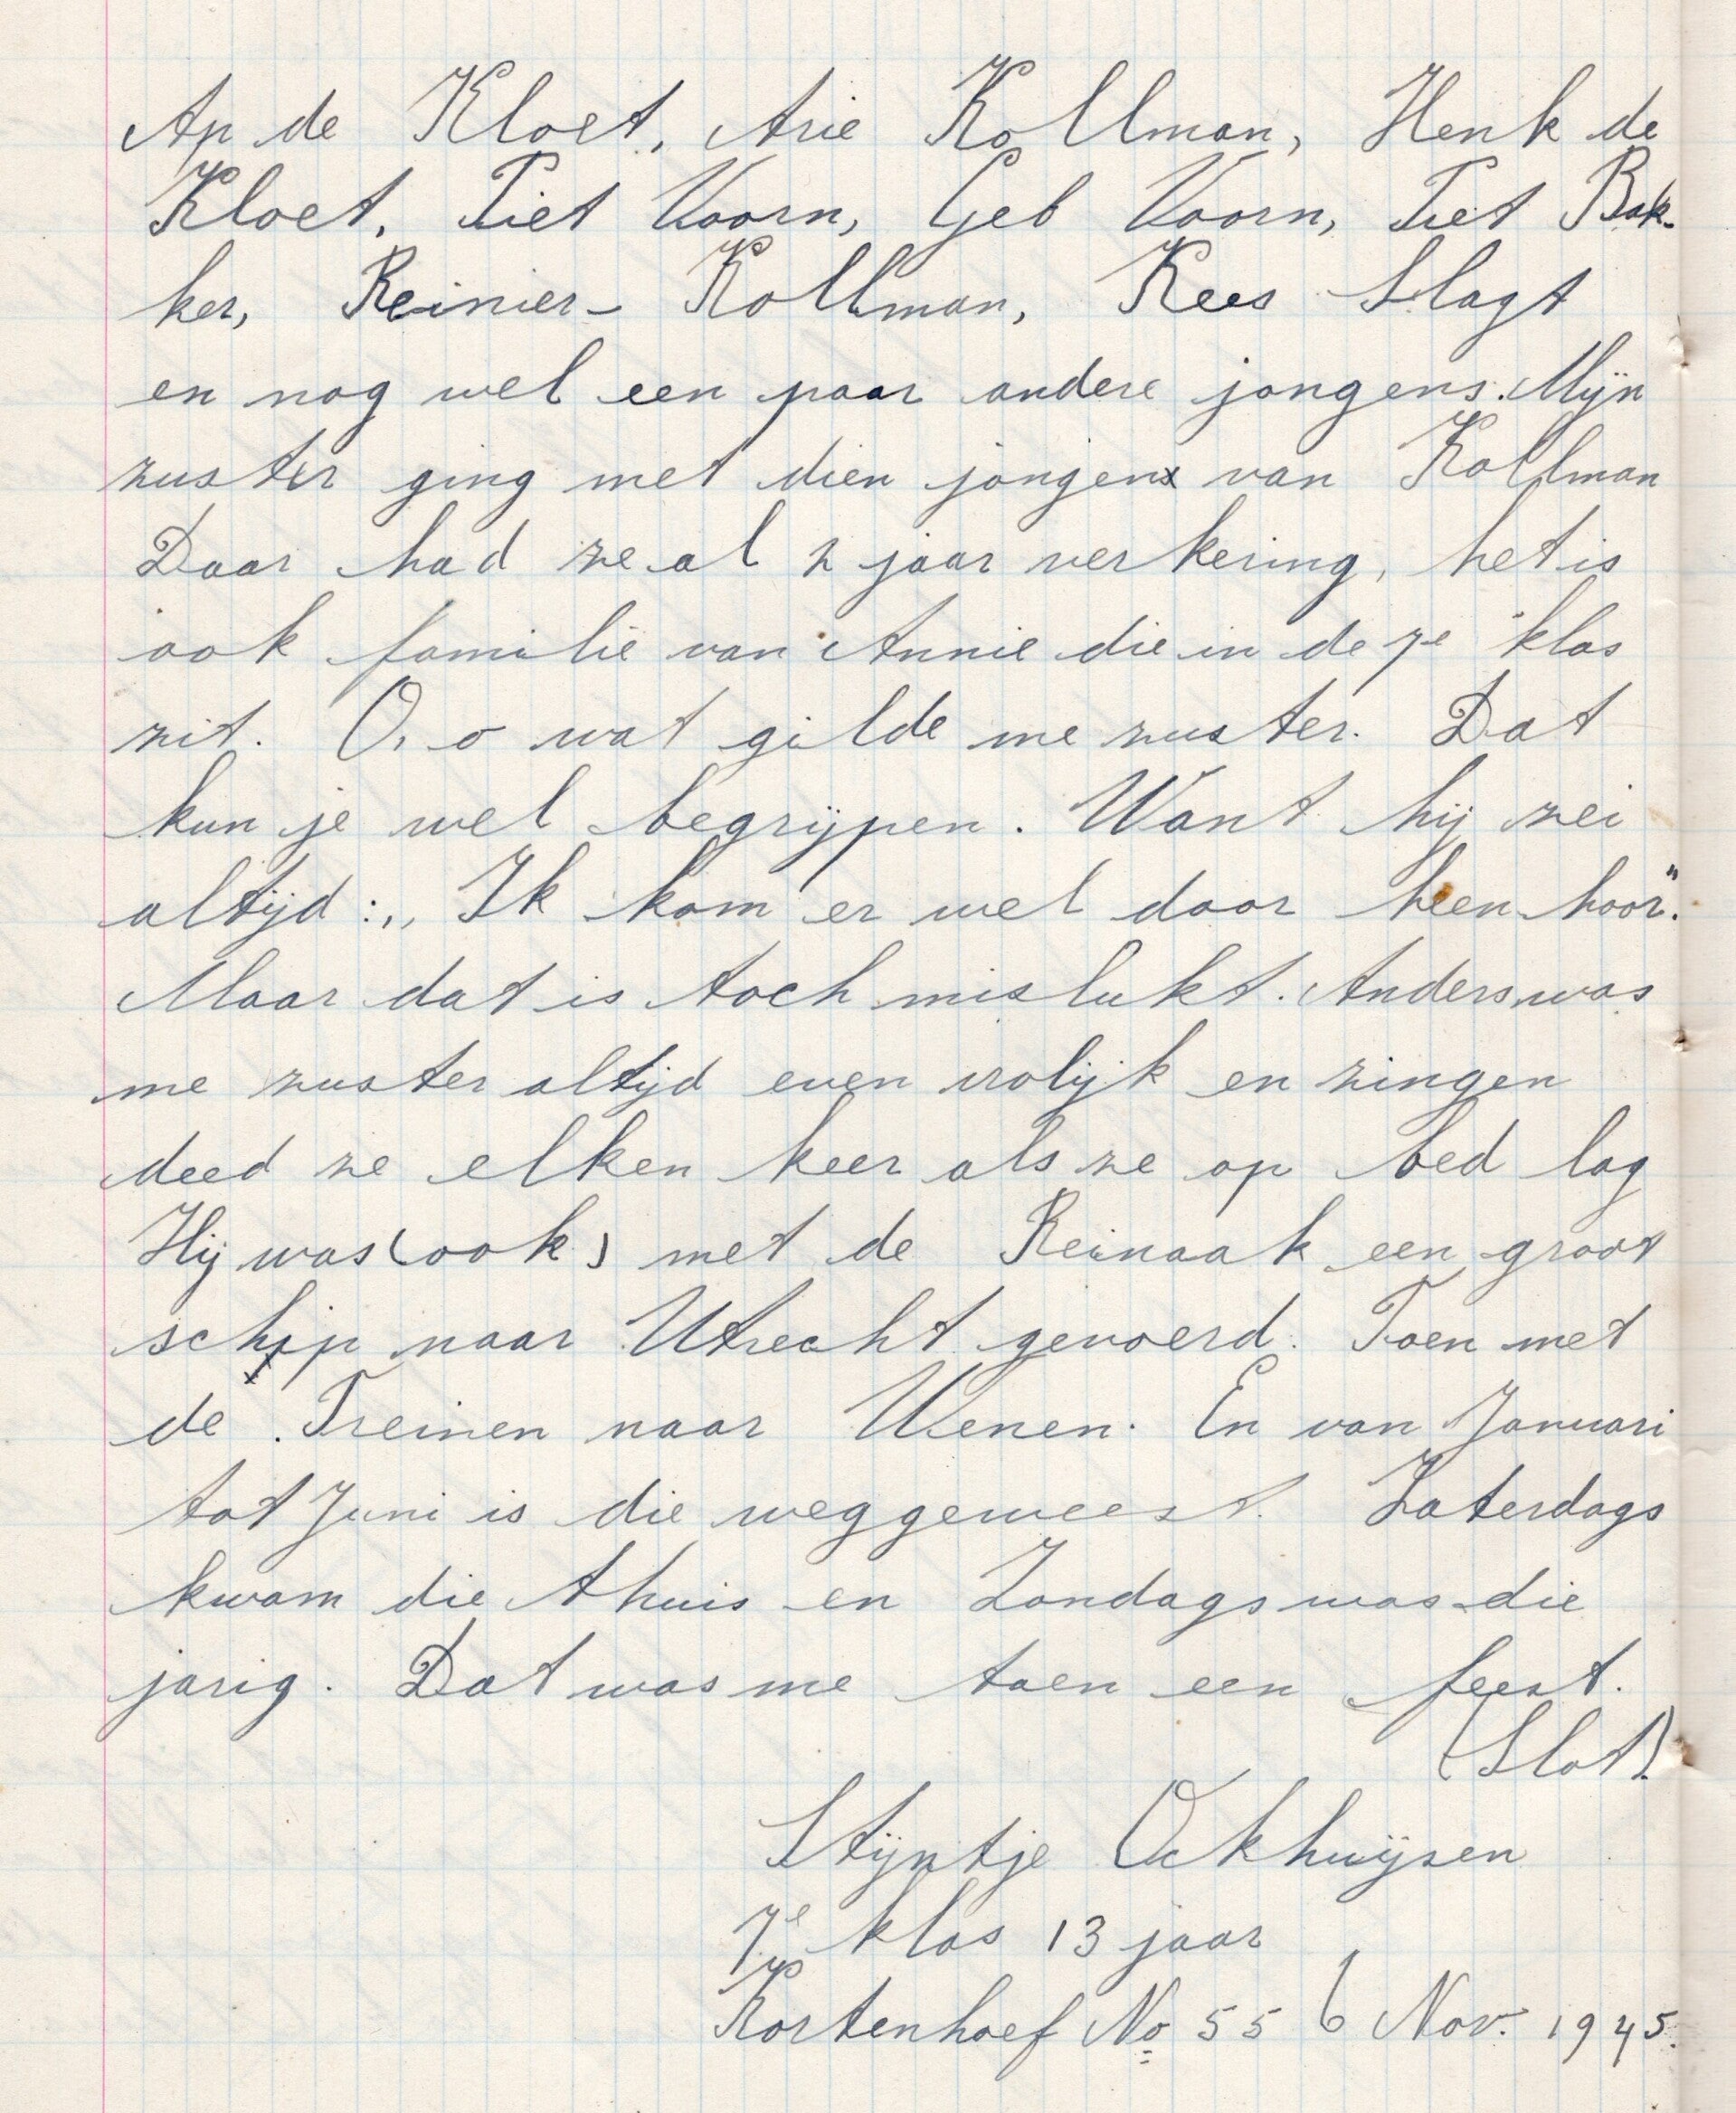 Ap de Kloet, Arie Kollman, Henk de
Kloet, Piet Voorn, Geb Voorn, Piet Bak-
ker, Reinier- Kollman, Kees Slagt
en nog wel een paar andere jongens. Mijn
zuster ging met dien jongen van Kollman
Daar had ze al 2 jaar verkering, het is
ook familie van Annie die in de 7e klas
zit. O, o wat gilde me zuster. Dat
kun je wel begrijpen. Want hij zei
altijd: „Ik kom er wel door heen hoor".
Maar dat is toch mislukt. Anders was
me zuster altijd even vrolijk en zingen
deed ze elken keer als ze op bed lag
Hij was (ook) met de Reinaak een groot
schip naar Utrecht gevoerd. Toen met
de Treinen naar Wenen. En van Januari
tot Juni is die weggeweest. Zaterdags
kwam die thuis en Zondags was die
jarig. Dat was me toen een feest.
(Slot).
Stijntje Ockhuijsen
7e klas 13 jaar
Kortenhoef No 55 6 Nov. 1945.